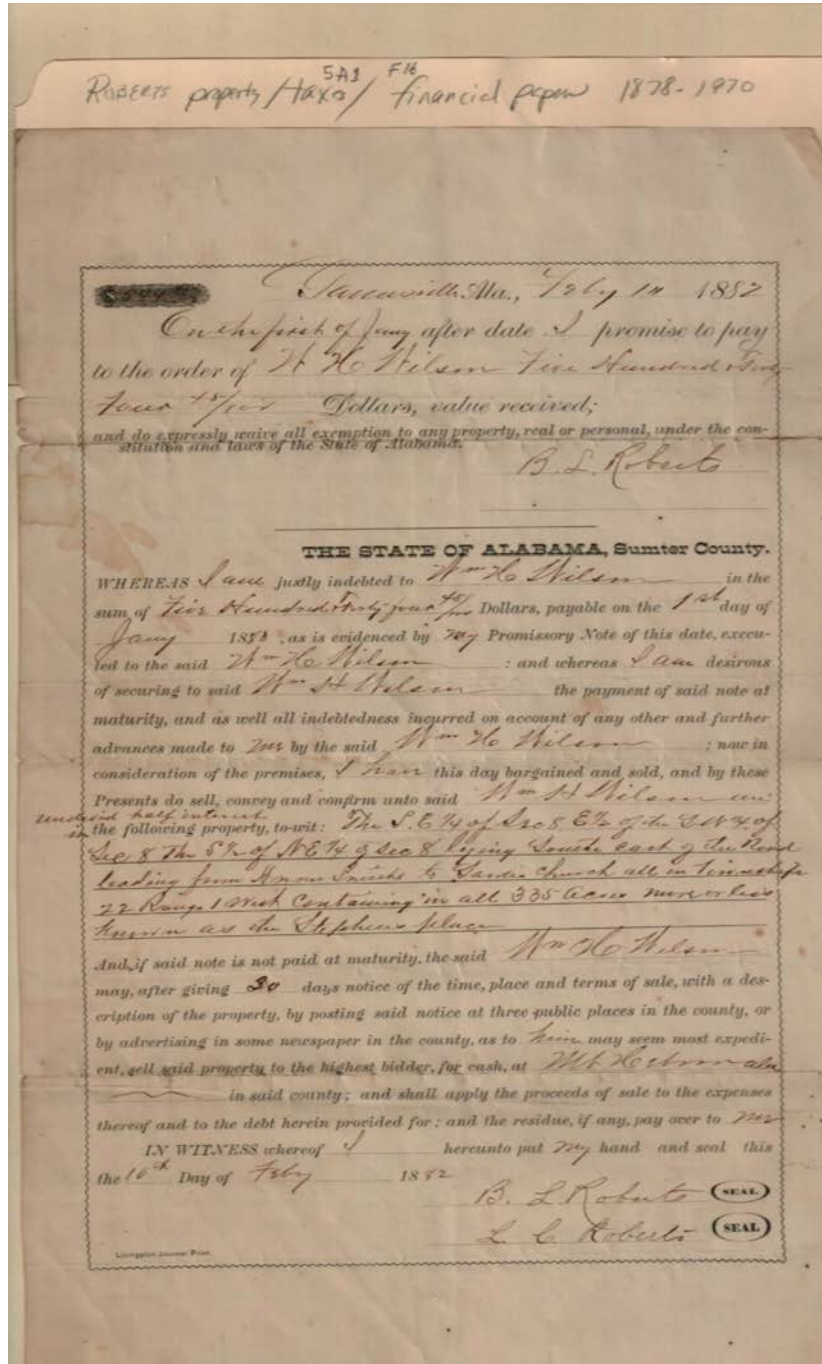 5A1 F16
ROBERTS property/taxes/financial papers 1878-1970
Ala., Feby 1882
On the first of Jany after date I promise to pay
to the order of W H Wilson Five Hundred &
Four 45/100 Dollars, value received;
and do expressly waive all exemption to any property, real or personal, under the con-
stitution and laws of the State of Alabama.
B. L. Roberts
THE STATE OF ALABAMA, Sumter County.
WHEREAS I am justly indebted to Wm H Wilson in the
sum of Five Hundred & Forty four 45/100 Dollars, payable on the 1st day of
Jany 188 , as is evidenced by my Promissory Note of this date, execu-
ted to the said Wm H Wilson : and whereas I am desirous
of securing to said Wm H Wilson the payment of said note at
maturity, and as well all indebtedness incurred on account of any other and further
advances made to me by the said Wm H Wilson ; now in
consideration of the premises, I have this day bargained and sold, and by these
Presents do sell, convey and confirm unto said Wm H Wilson an
undivid half interest
in the following property, to-wit: The S.E 1/4 of Sec 8 E 1/2 of the S W 1/4 of
Sec 8 The S 1/2 of N E 1/4 of Sec 8 lying South east of the Road
leading from to Church all in Township
22 Range 1 West Containing in all 335 acres more or less
known as the Stephens place
And, if said note is not paid at maturity, the said Wm H Wilson
may, after giving 30 days notice of the time, place and terms of sale, with a des-
cription of the property, by posting said notice at three public places in the county, or
by advertising in some newspaper in the county, as to him may seem most expedi-
ent, sell said property to the highest bidder, for cash, at Mt
in said county; and shall apply the proceeds of sale to the expenses
thereof and to the debt herein provided for; and the residue, if any, pay over to me
IN WITNESS whereof I hereunto put my hand and seal this
the 16th Day of Feby 1882
B. L Roberts (SEAL)
L C Roberts (SEAL)
Livingston Journal Print.